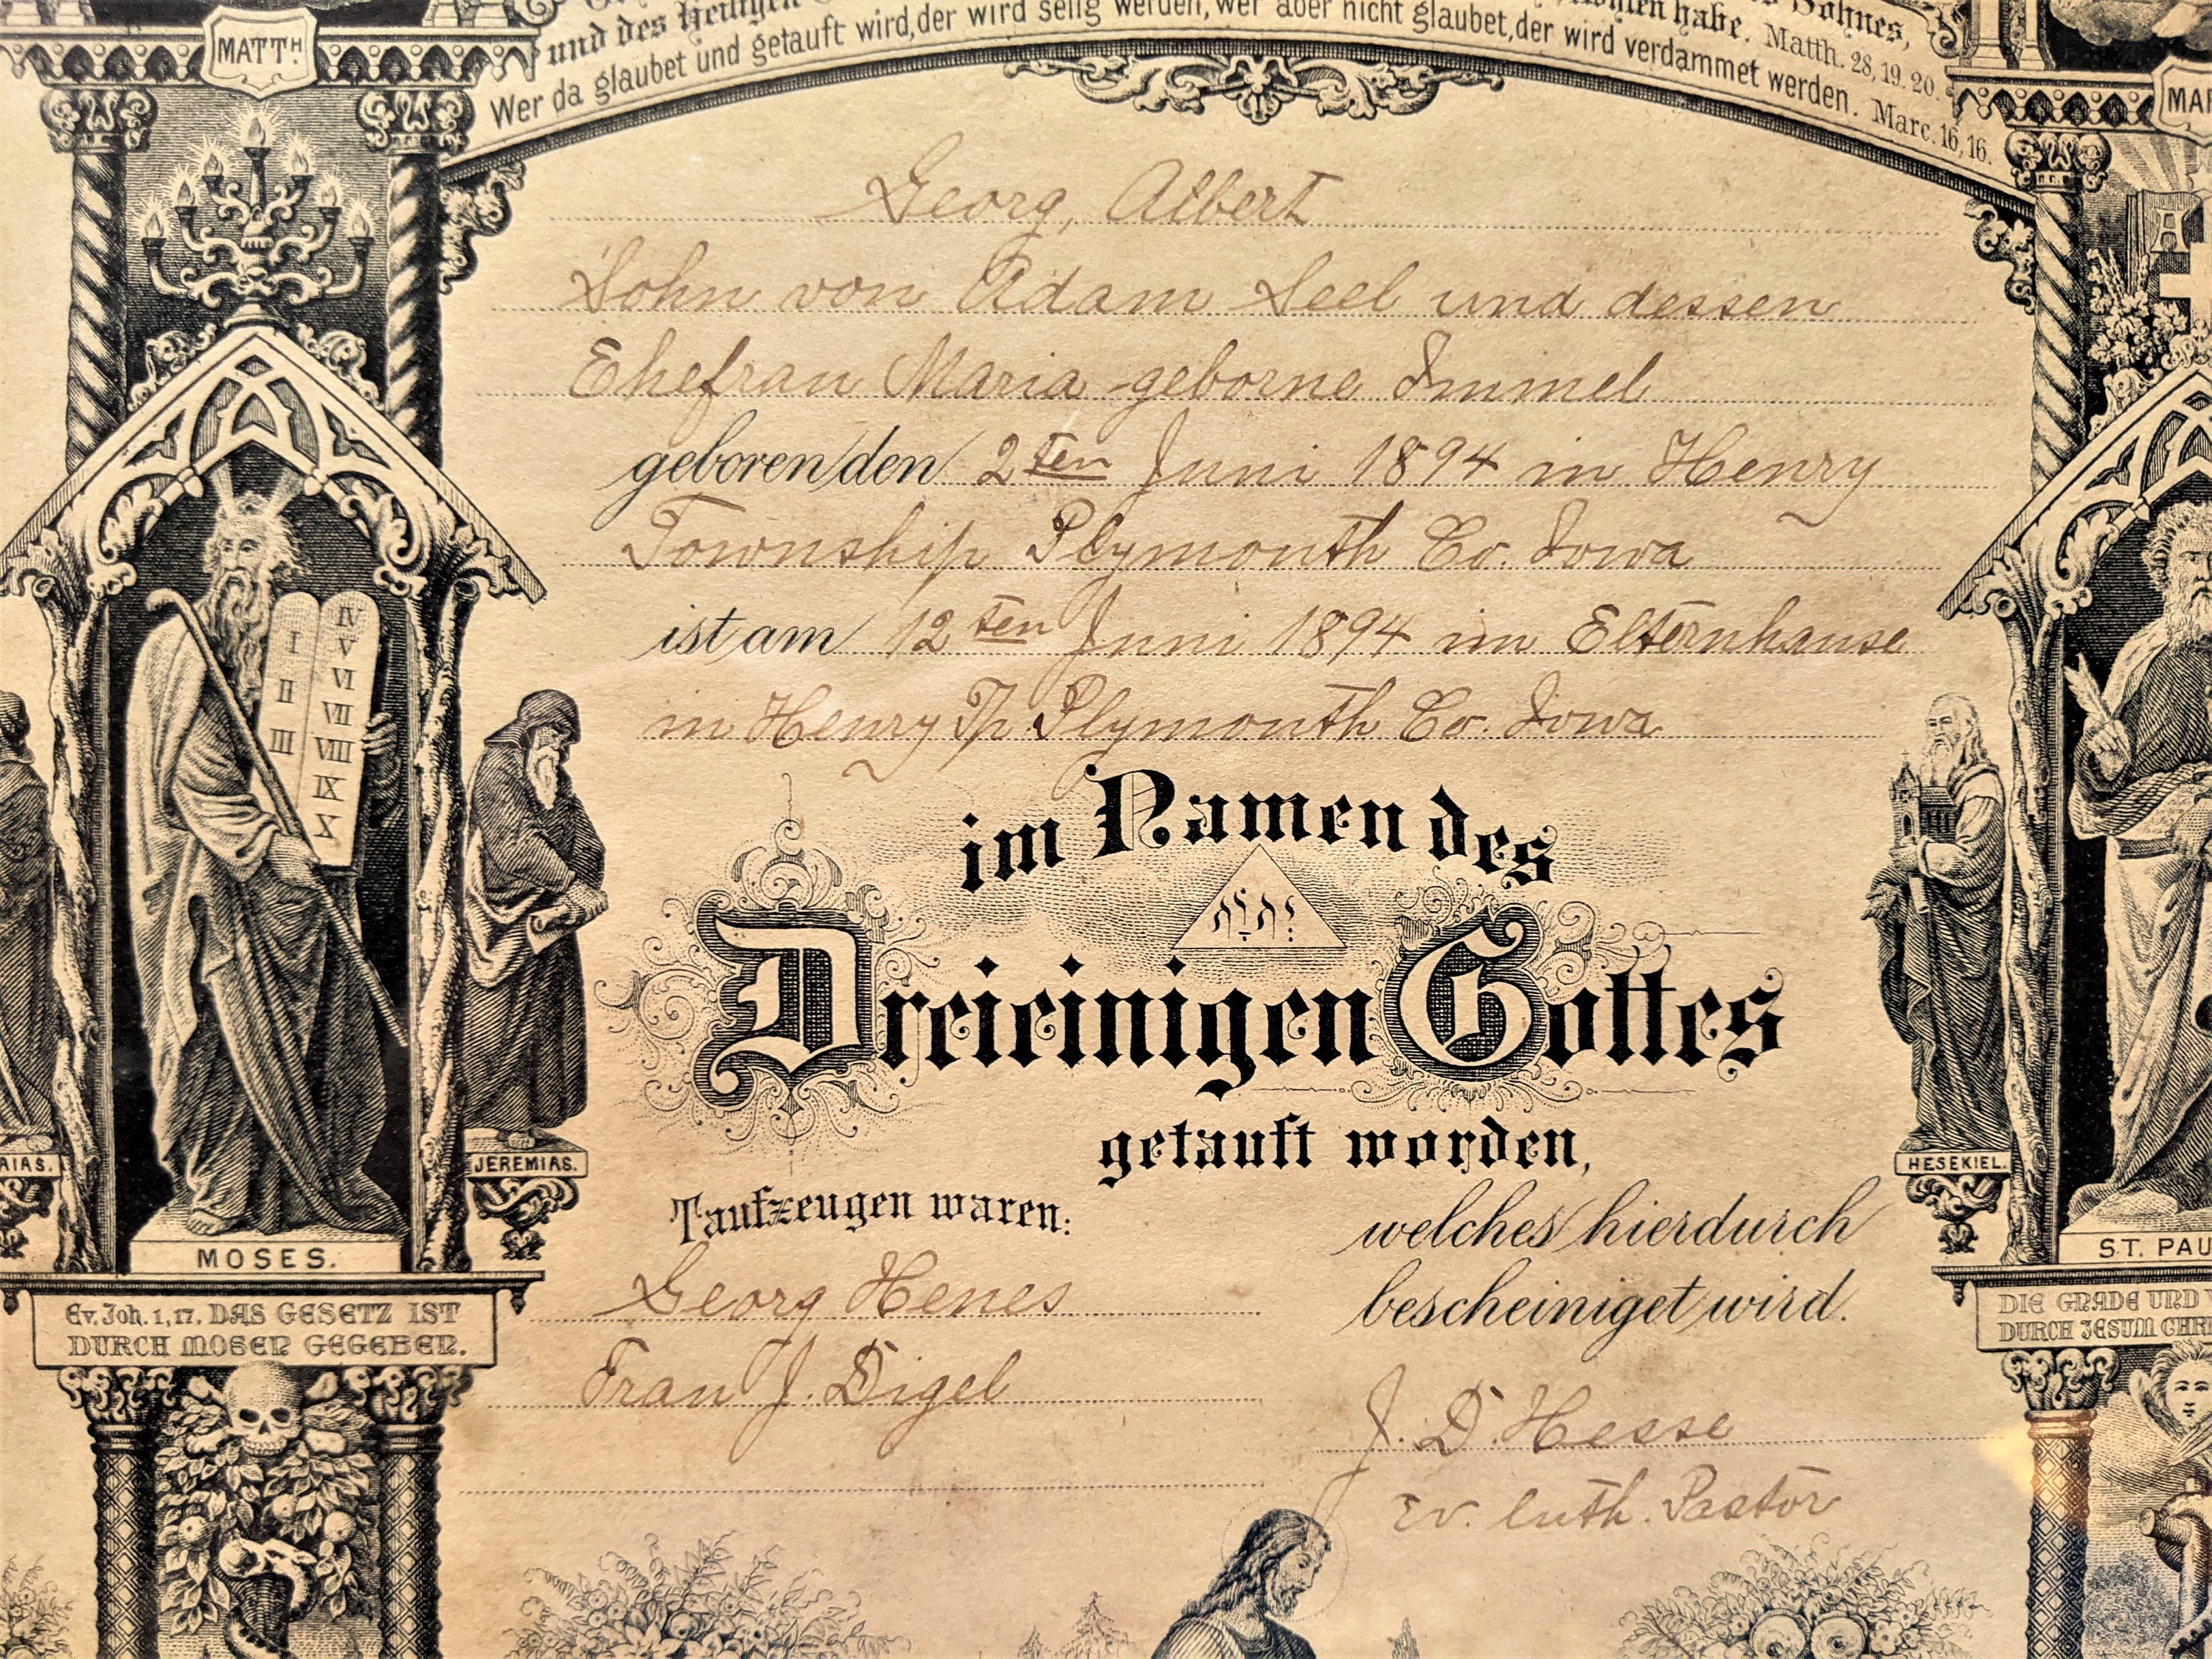 MATTH.
und des Heiligen
habe. Matth. 28, 19. 20.
Sohnes,
Wer da glaubet und getauft wird, der wird selig werden, wer aber nicht glaubet, der wird verdammet werden. Marc. 16, 16.
Georg, Albert
Sohn von Adam Seel und dessen
Ehefrau Maria geborne Immel
geboren den 2ten Juni 1894 in Henry
Township Plymouth Co. Iowa
ist am 12ten Juni 1894 im Elternhause
in Henry Tp Plymouth Co. Iowa
im Namen des
יהוה
Dreieinigen Gottes
getauft worden,
Taufzeugen waren:
Georg Henes
Frau J. Digel
welches hierdurch
bescheiniget wird.
J. D. Hesse
Ev. luth. Pastor
I
II
III
IV
V
VI
VII
VIII
IX
X
AIAS.
MOSES.
JEREMIAS.
Ev. Joh. 1, 17. DAS GESETZ IST
DURCH MOSEN GEGEBEN.
MAR
A
HESEKIEL.
ST. PAU
DIE GNADE UND
DURCH JESUM CHRI